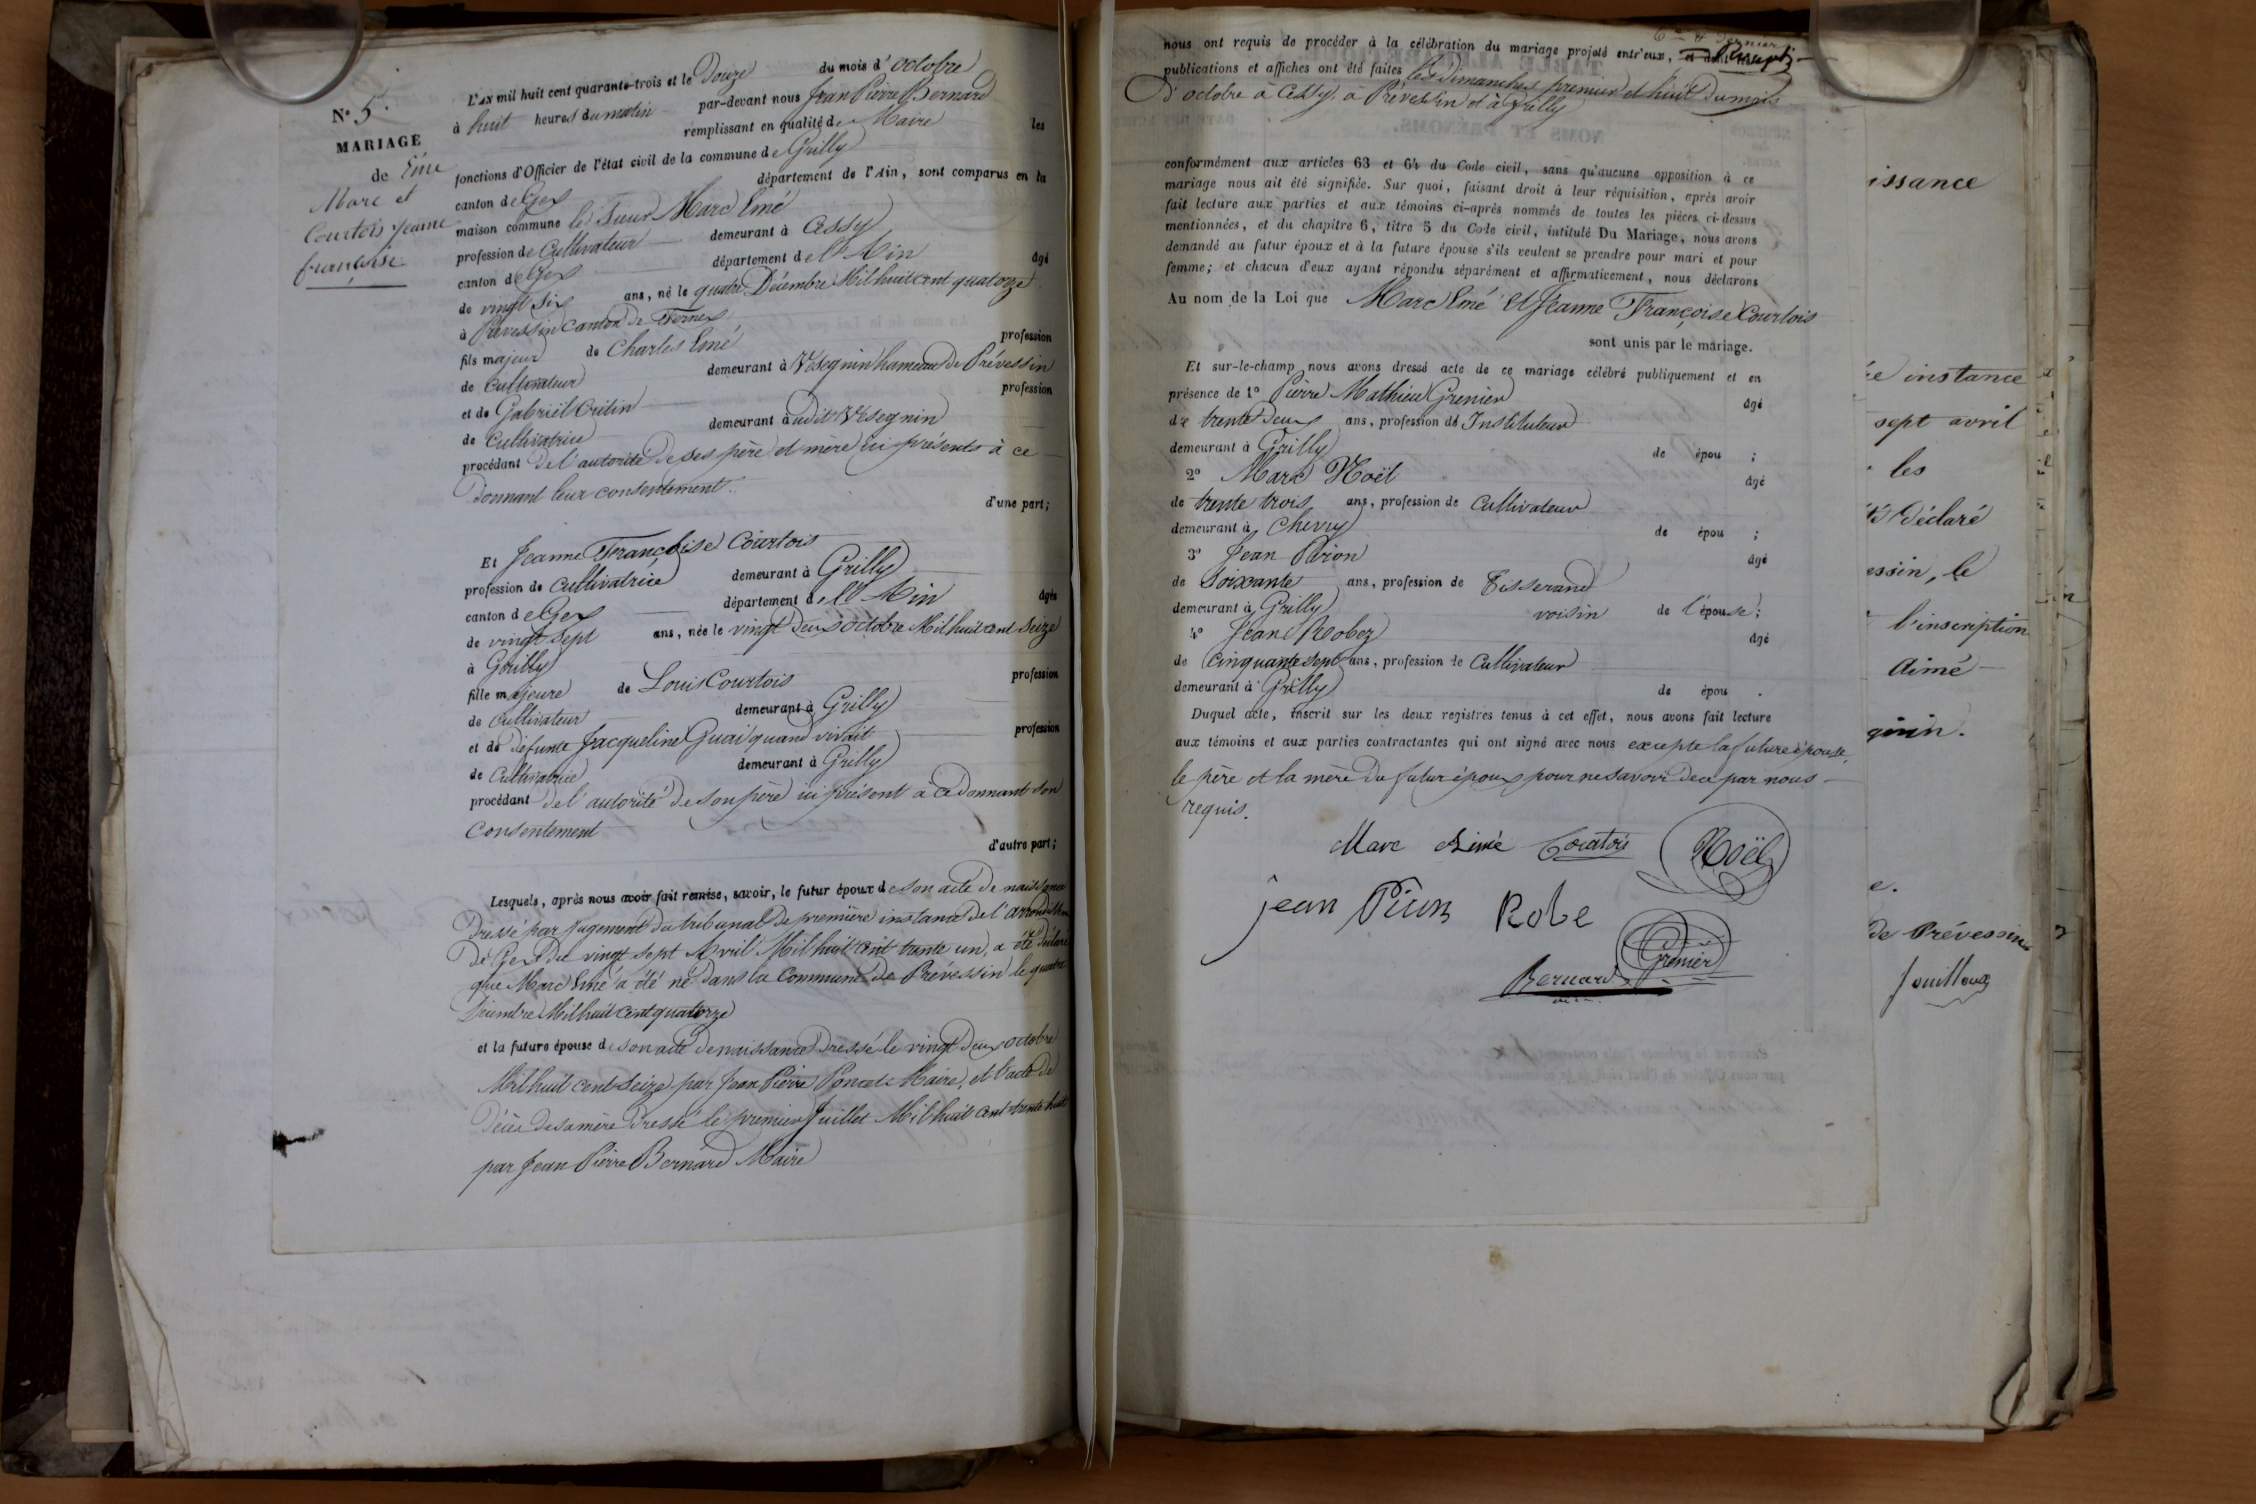 N° 5.
MARIAGE
de Emé
Marc et
Courtois Jeanne
françoise
L'AN mil huit cent quarante-trois et le Douze du mois d'octobre
à huit heures du matin par-devant nous Jean Pierre Bernard
remplissant en qualité de Maire les
fonctions d'Officier de l'état civil de la commune de Grilly
canton de Gex département de l'Ain, sont comparus en la
maison commune le Sieur Marc Emé
profession de Cultivateur demeurant à Cessy
canton de Gex département de l'Ain âgé
de vingt six ans, né le quatre Décembre Mil huit cent quatorze
à Prévessin canton de Fernex
fils majeur de Charles Emé profession
de Cultivateur demeurant à Vésegnin hameau de Prévessin
et de Gabriel profession
de Cultivatrice demeurant à udit Vésegnin
procédant de l'autorité de ses père et mère ici présents à ce
Donnant leur consentement.
d'une part;
Et Jeanne Françoise Courtois
profession de cultivatrice demeurant à Grilly
canton de Gex département de l'Ain âgée
de vingt sept ans, née le vingt deux octobre Mil huit cent seize
à Grilly
fille majeure de Louis Courtois profession
de Cultivateur demeurant à Grilly
et de défunte Jacqueline Guai quand vivait profession
de Cultivatrice demeurant à Grilly
procédant de l'autorité de son père ici présent à ce Donnant son
consentement
d'autre part;
Lesquels, après nous avoir fait remise, savoir, le futur époux de son acte de naissance
Dressé par jugement du tribunal de première instance de l'arrondissem
De Gex du vingt sept Avril Mil huit cent trente un, a été déclaré
que Marc Emé a été né dans la Commune de Prévessin le quatre
Décembre Mil huit cent quatorze
et la future épouse de son acte de naissance Dressé le vingt deux octobre
Mil huit cent seize par Jean Pierre Poncet Maire, et l'acte de
Décès de sa mère Dressé le premier Juillet Mil huit cent trente huit
par Jean Pierre Bernard Maire
nous ont requis de procéder à la célébration du mariage projeté entr'eux, et dont les
publications et affiches ont été faites les dimanches premier et huit du mois
D'octobre à Cessy, à Prévessin et à Grilly
conformément aux articles 63 et 64 du Code civil, sans qu'aucune opposition à ce
mariage nous ait été signifiée. Sur quoi, faisant droit à leur réquisition, après avoir
fait lecture aux parties et aux témoins ci-après nommés de toutes les pièces ci-dessus
mentionnées, et du chapitre 6, titre 5 du Code civil, intitulé Du Mariage, nous avons
demandé au futur époux et à la future épouse s'ils veulent se prendre pour mari et pour
femme; et chacun d'eux ayant répondu séparément et affirmativement, nous déclarons
Au nom de la Loi que Marc Emé Et Jeanne Françoise Courtois
sont unis par le mariage.
Et sur-le-champ nous avons dressé acte de ce mariage célébré publiquement et en
présence de 1° Pierre Mathieu Grenier âgé
de trente deux ans, profession de Instituteur
demeurant à Grilly de épou ;
2° Marc Noël âgé
de trente trois ans, profession de Cultivateur
demeurant à Chevry de épou ;
3° Jean Piron âgé
de Soixante ans, profession de Tisserand
demeurant à Grilly voisin de l'épouse;
4° Jean Robez âgé
de cinquante sept ans, profession de Cultivateur
demeurant à Grilly de épou .
Duquel acte, inscrit sur les deux registres tenus à cet effet, nous avons fait lecture
aux témoins et aux parties contractantes qui ont signé avec nous excepté la future épouse,
le père et la mère du futur époux pour ne savoir de ce par nous
requis.
Marc Aimé Courtois Noël
jean Piron Robe
Grenier
Bernard
issance
e instance
sept avril
les
Déclaré
essin, le
l'inscription
Aimé
gnin.
e.
de Prévessin
Jouilloux